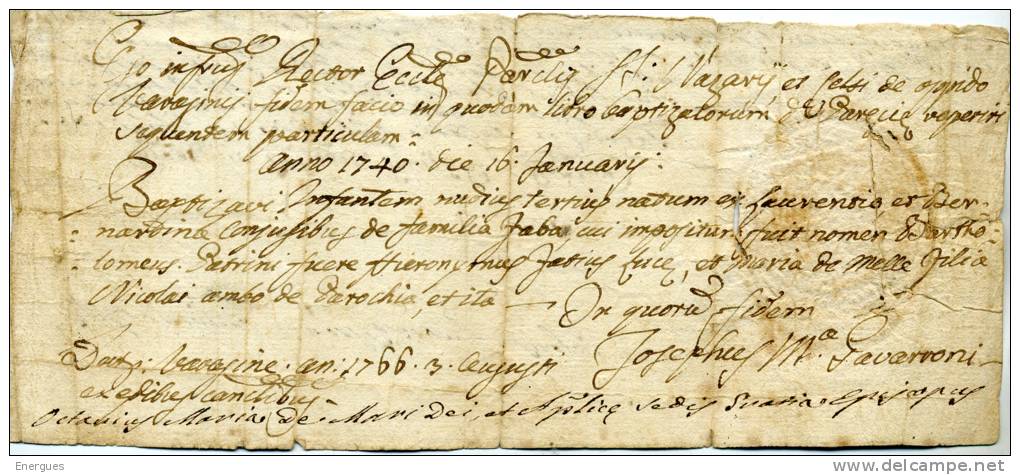 Ego infrus Rector Eccle Parclis Sti Nazarij et Celsi de oppido
Varaginis fidem facio in quodam libro baptizatorum de Parecia reperiri
sequentem particulam
Anno 1740. die 16. Januarij:
Baptizavi Infantem nudius tertius natum ex Laurentio et Ber-
nardina Conjugibus de familia Faba, cui impositum fuit nomen Bartho-
lomeus. Patrini fuere Hieronymus Fatius Luce, et Maria de Melle Filia
Nicolai ambo de Parochia, et ita
In quoru fidem
Josephus Ma Pavarroni
Dat. Varagine. an: 1766. 3. Augusti
ex edibus
Octavius Maria De Mari Dei, et Aplice sedis Episcopus
Energues
www.delcampe.net